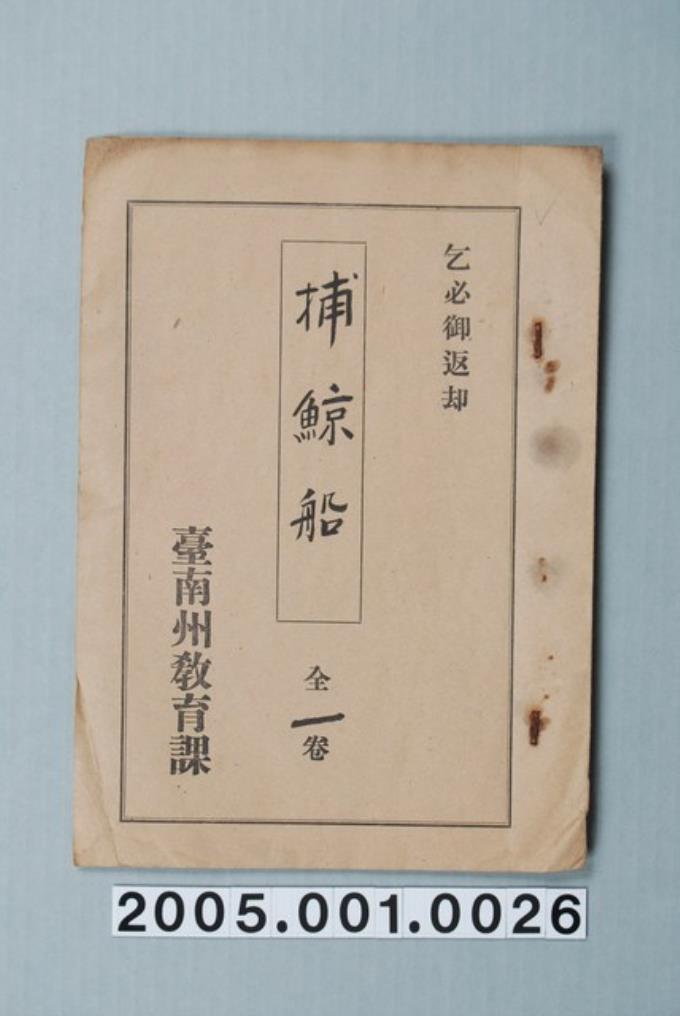 乞必御返却
捕鯨船
全一卷
臺南州教育課
2005.001.0026